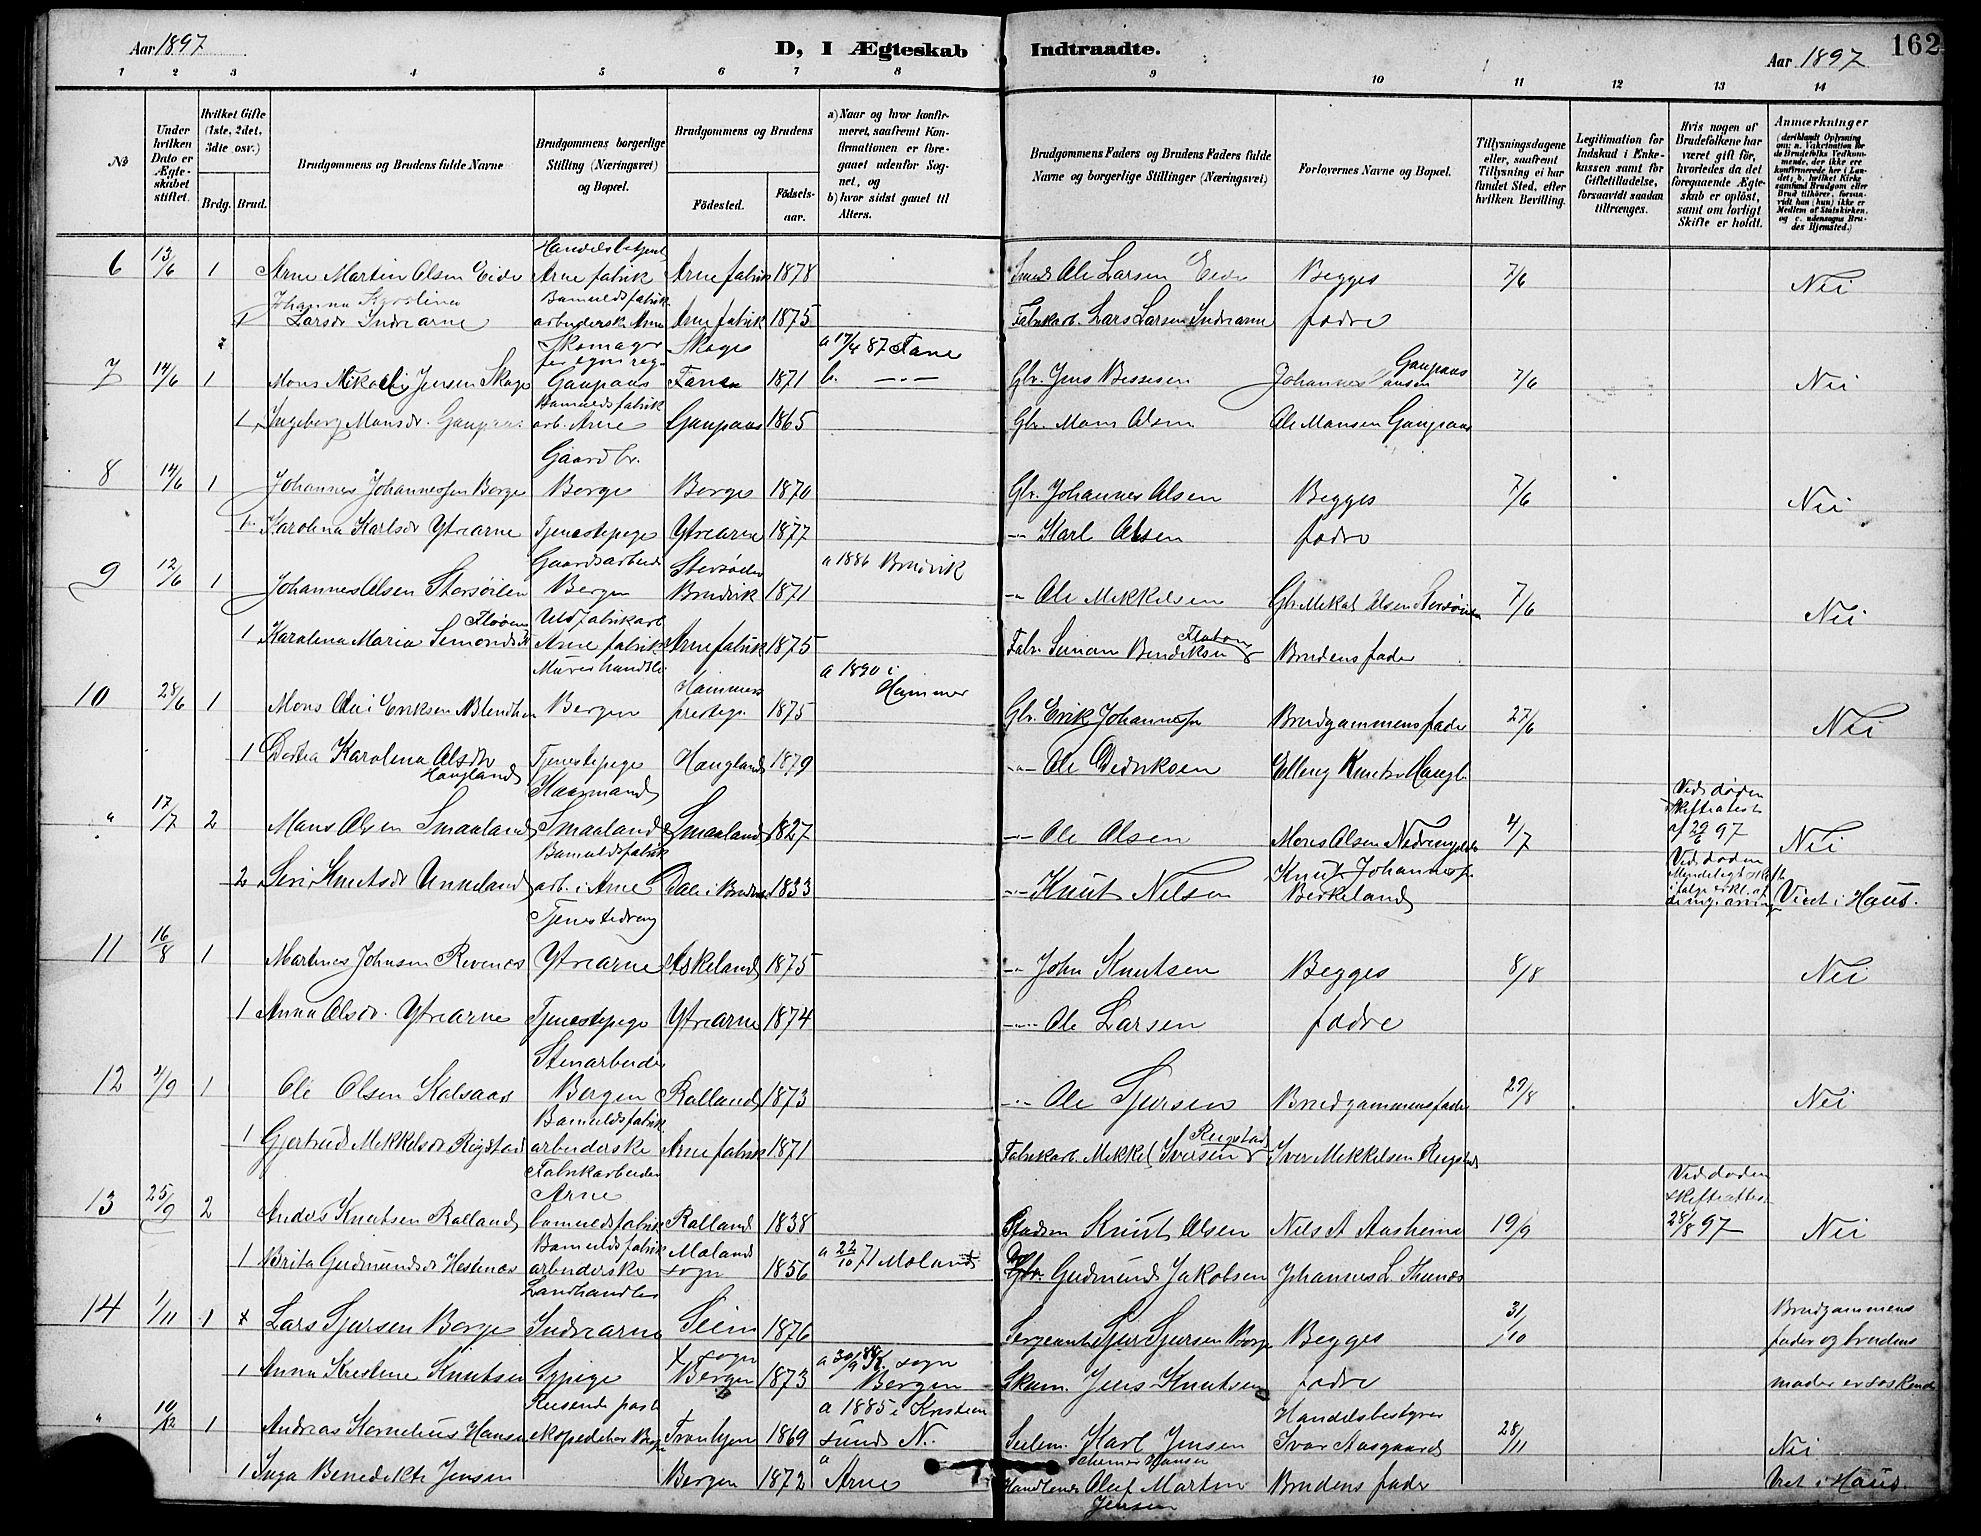 Aar 1897
D, I Ægteskab Indtraadte.
Aar 1897 162
1 2 3 4 5 6 7 8 9 10 11 12 13 14
No
Under hvilken Dato er Ægteskabet stiftet.
Hvilket Gifte (1ste, 2det, 3die osv.)
Brdg. Brud.
Brudgommens og Brudens fulde Navne
Brudgommens borgerlige Stilling (Næringsvei) og Bopæl.
Brudgommens og Brudens
Fødested.
Fødselsaar.
a) Naar og hvor konfirmeret, saafremt Konfirmationen er foregaaet udenfor Sognet, og
b) hvor sidst gaaet til Alters.
Brudgommens Faders og Brudens Faders fulde Navne og borgerlige Stillinger (Næringsvei)
Forlovernes Navne og Bopæl.
Tillysningsdagene eller, saafremt Tillysning ei har fundet Sted, efter hvilken Bevilling.
Legitimation for Indskud i Enkekassen samt for Giftetilladelse, forsaavidt saadan tiltrænges.
Hvis nogen af Brudefolkene har været gift før, hvorledes da det foregaaende Ægteskab er opløst, samt om lovligt Skifte er holdt.
Anmærkninger
6 13/6 1 Arne Martin Olsen Eide Handelsbetjent Arne fabrik Arne fabrik 1878 Smed Ole Larsen Eide Begges 7/6 Nei
1 Johanna Karolina Larsdr Indrearne Bomuldsfabrikarbeiderske Arne Arne fabrik 1875 Fabrikarb. Lars Larsen Indrearne fædre
7 14/6 1 Mons Mikael Jensen Skage Skomager for egen regn Gaupaas Skage Fane 1871 a 17/4 87 Fane b. -"- Gbr. Jens Bessesen Johannes Hansen Gaupaas 7/6 Nei
1 Ingeborg Monsdr. Gaupaas Bomuldsfabrik arb. Arne Gaupaas 1865 Gbr. Mons Olsen Ole Monsen Gaupaas
8 14/6 1 Johannes Johannessen Borge Gaardbr. Borge Borge 1870 Gbr. Johannes Olsen Begges 7/6 Nei
1 Karolina Karlsdr Ytrearne Tjenestepige Ytrearne 1877 -"- Karl Olsen fædre
9 12/6 1 Johannes Olsen Storsøilen Gaardsarbeid Bergen Bruvik 1871 a 1886 Bruvik -"- Ole Mikkelsen Gbr Mikal Olsen Storsøilen 7/6 Nei
1 Karolina Maria Simonsdr Uldfabrikarb Arne fabrik Arne fabrik 1875 Fabr. Simon Bendiksen Brudens fader
10 28/6 1 Mons Olai Eriksen Blindheim Bergen Hammers prestegj. 1875 a 1890 i Hammer Gbr. Erik Johannessen Brudgommens fader 27/6 Nei
1 Dortea Karolina Olsdtr Haugland Tjenestepige Haugland 1879 -"- Ole Dedriksen Elling Knutsn Haugl.
" 17/7 2 Mons Olsen Smaaland Kaarmand Smaaland Smaaland 1827 -"- Ole Olsen Mons Olsen 4/7 Ved døden skifteattest af 29/6 97 Nei
2 Siri Knutsdr Unneland Bomuldsfabrik arb. i Arne Dale i Bruvik 1833 -"- Knut Nilsen Knut Johannessn Birkeland Ved døden Viet i Haus.
11 16/8 1 Martines Johnsen Revenes Tjenestedreng Ytrearne Askeland 1875 -"- John Knutsen Begges 8/8 Nei
1 Anna Olsdr. Ytrearne Tjenestepige Ytrearne 1874 -"- Ole Larsen fædre
12 4/9 1 Ole Olsen Kalsaas Stenarbeider Bergen Rolland 1873 -"- Ole Sjursen Brudgommens fader 29/8 Nei
1 Gjertrud Mikkelsdr Rigstad Bomuldsfabrikarbeiderske Arne fabrik 1871 Fabrikarb. Mikkel Iversen Rigstad Iver Mikkelsen Rigstad
13 25/9 2 Anders Knutsen Rolland Fabrikarbeider Arne bomuldsfabrik Rolland 1838 Pladsm Knut Olsen Nils A Aasheim 19/9 Ved døden skifteattest 28/8 97 Nei
1 Brita Gudmundsdr Hestnæs Bomuldsfabrik arbeiderske Moland sogn 1856 a 22/10 71 Moland Gbr. Gudmund Jakobsen Johannes L. Thunes
14 1/11 1 x Lars Sjursen Borge Landhandler Indrearne Seim 1876 Sergeant Sjur Sjursen Borge Begges 31/10 Brudgommens fader og brudens moder er søskende
1 Anna Kristine Knutsen Sypige sogn Bergen 1873 a 30/9 88 sogn Bergen Skom. Jens Knutsen fædre
" 10/12 1 Andreas Kornelius Hansen Reisende post ekspeditør Bergen Tronhjem 1869 a 1885 i Kristiansunds N. Selem. Karl Jensen Johannes Hansen Handelsbestyrer Ivar Aasgaard 28/11 Nei
1 Inga Benedikte Jensen Bergen 1872 " Arne Handlende Oluf Martin Jensen Brudens fader Viet i Haus.